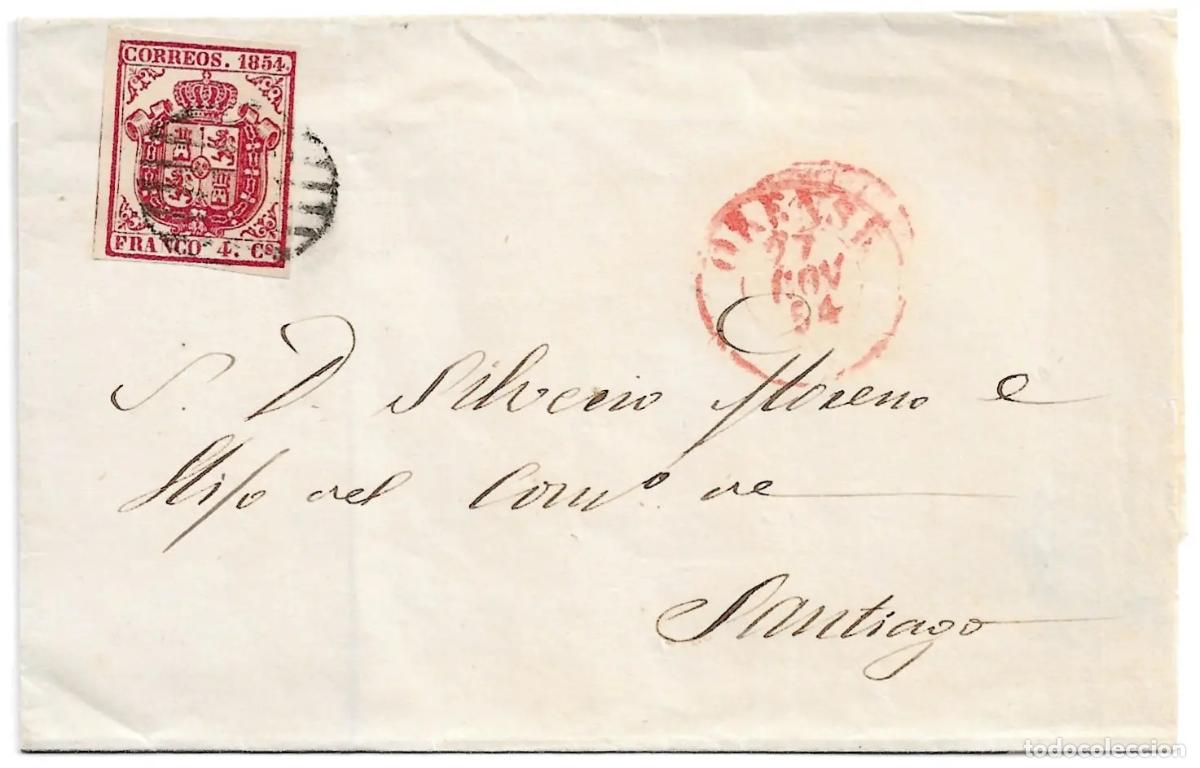 CORREOS. 1854.
FRANCO 4. Cs
ORENSE
27
NOV
54
S. D. Silverio Moreno e
Hijo del Comº. de
Santiago
todocoleccion